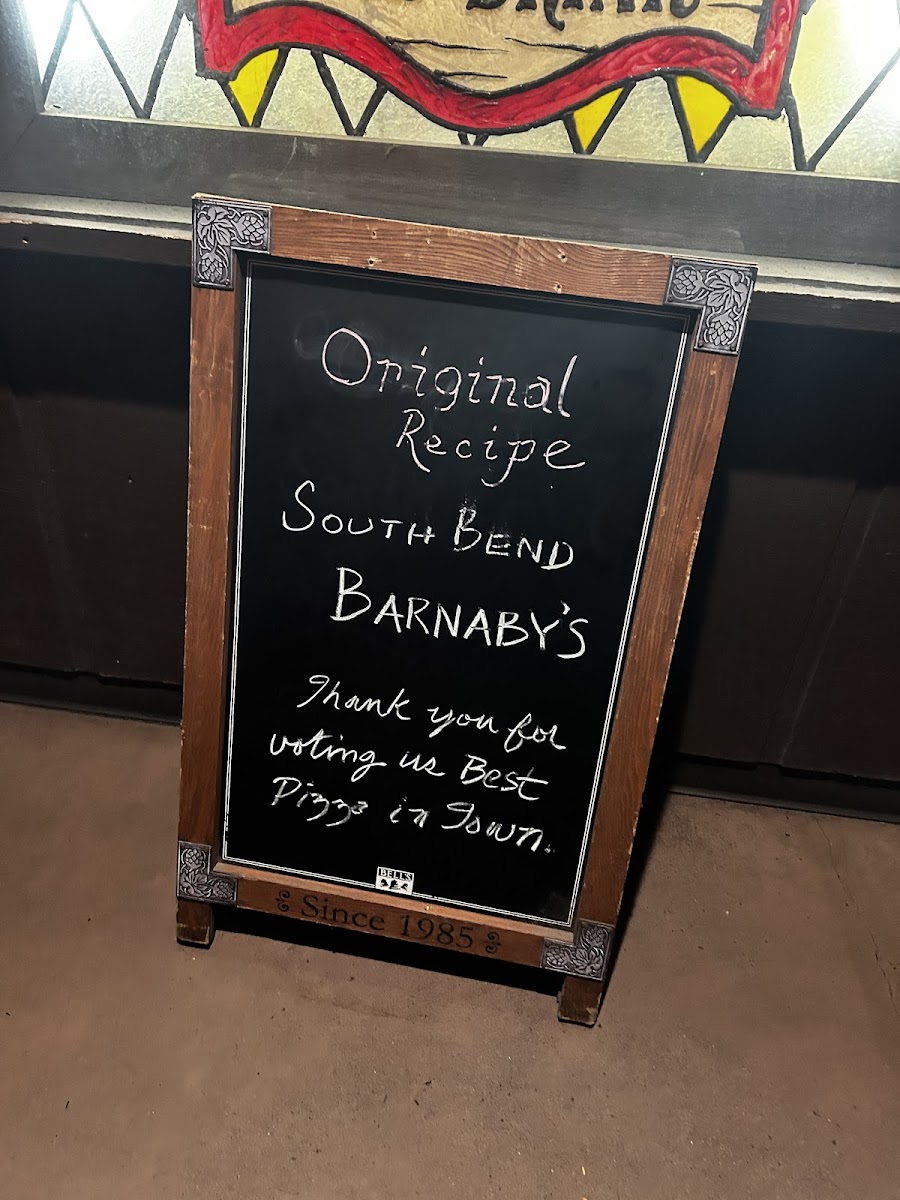 Original
Recipe
SOUTH BEND
BARNABY'S
Thank you for
voting us Best
Pizza in Town.
BELL'S
Since 1985